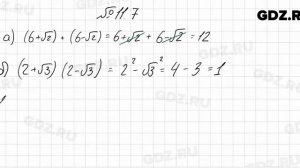 №117
GDZ.RU
а) (6+√2) + (6-√2) = 6+√2 + 6-√2 = 12
б) (2+√3) (2-√3) = 2² - √3² = 4 - 3 = 1
GDZ.RU